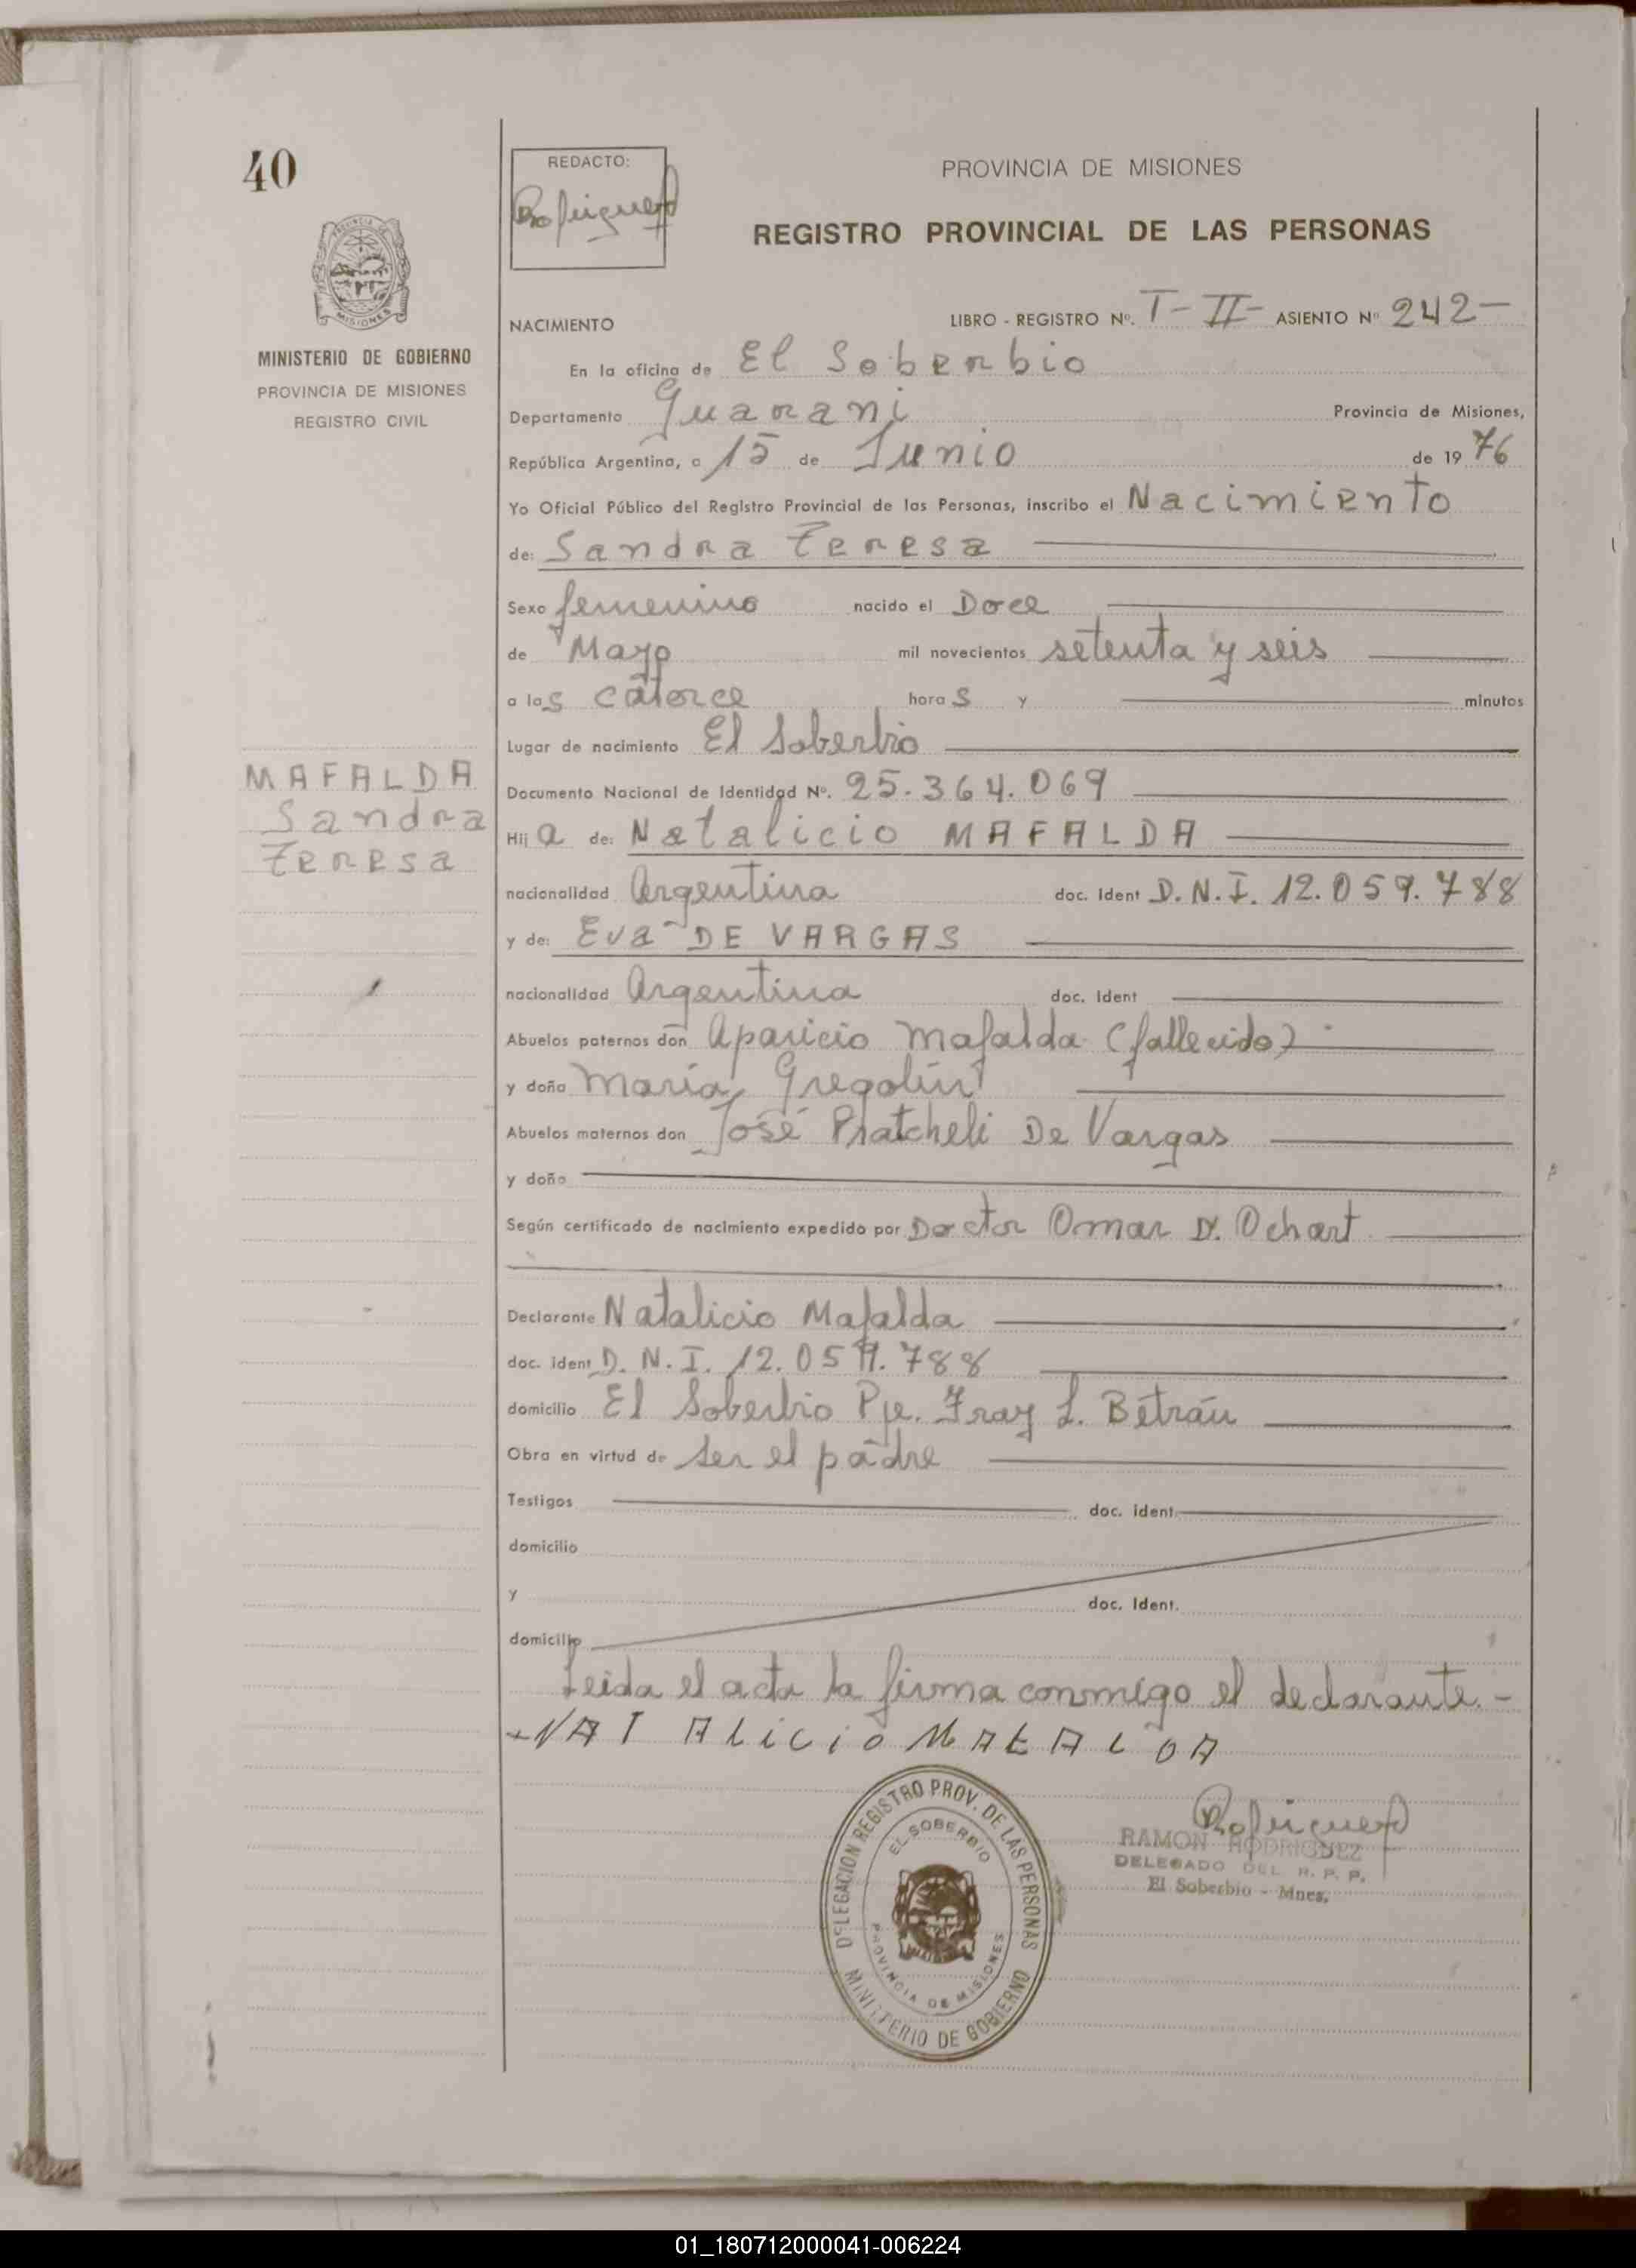 40
REDACTO:
PROVINCIA DE MISIONES
REGISTRO PROVINCIAL DE LAS PERSONAS
MINISTERIO DE GOBIERNO
PROVINCIA DE MISIONES
REGISTRO CIVIL
NACIMIENTO LIBRO - REGISTRO Nº. T - II - ASIENTO Nº 242 -
En la oficina de El Soberbio
Departamento Guarani Provincia de Misiones,
República Argentina, a 15 de Junio de 19 76
Yo Oficial Público del Registro Provincial de las Personas, inscribo el Nacimiento
de: Sandra Teresa
Sexo femenino nacido el Doce
de Mayo mil novecientos setenta y seis
a las catorce horas y minutos
Lugar de nacimiento El Soberbio
MAFALDA
Sandra
Teresa
Documento Nacional de Identidad Nº. 25.364.069
Hija de: Natalicio MAFALDA
nacionalidad Argentina doc. ident D.N.I. 12.059.788
y de: Eva DE VARGAS
nacionalidad Argentina doc. ident
Abuelos paternos don Aparicio Mafalda (fallecido)
y doña María Gregolin
Abuelos maternos don José Pratcheli De Vargas
y doña
Según certificado de nacimiento expedido por Doctor Omar D. Ochart
Declarante Natalicio Mafalda
doc. ident D.N.I. 12.059.788
domicilio El Soberbio Pje. Fray L. Betrán
Obra en virtud de ser el padre
Testigos doc. ident.
domicilio
y doc. Ident.
domicilio
Leida el acta la firma conmigo el declarante.-
NATALiCiO MAFALDA
DELEGACION REGISTRO PROV. DE LAS PERSONAS
EL SOBERBIO
PROVINCIA DE MISIONES
MINISTERIO DE GOBIERNO
RAMON RODRIGUEZ
DELEGADO DEL R. P. P.
El Soberbio - Mnes.
01_180712000041-006224